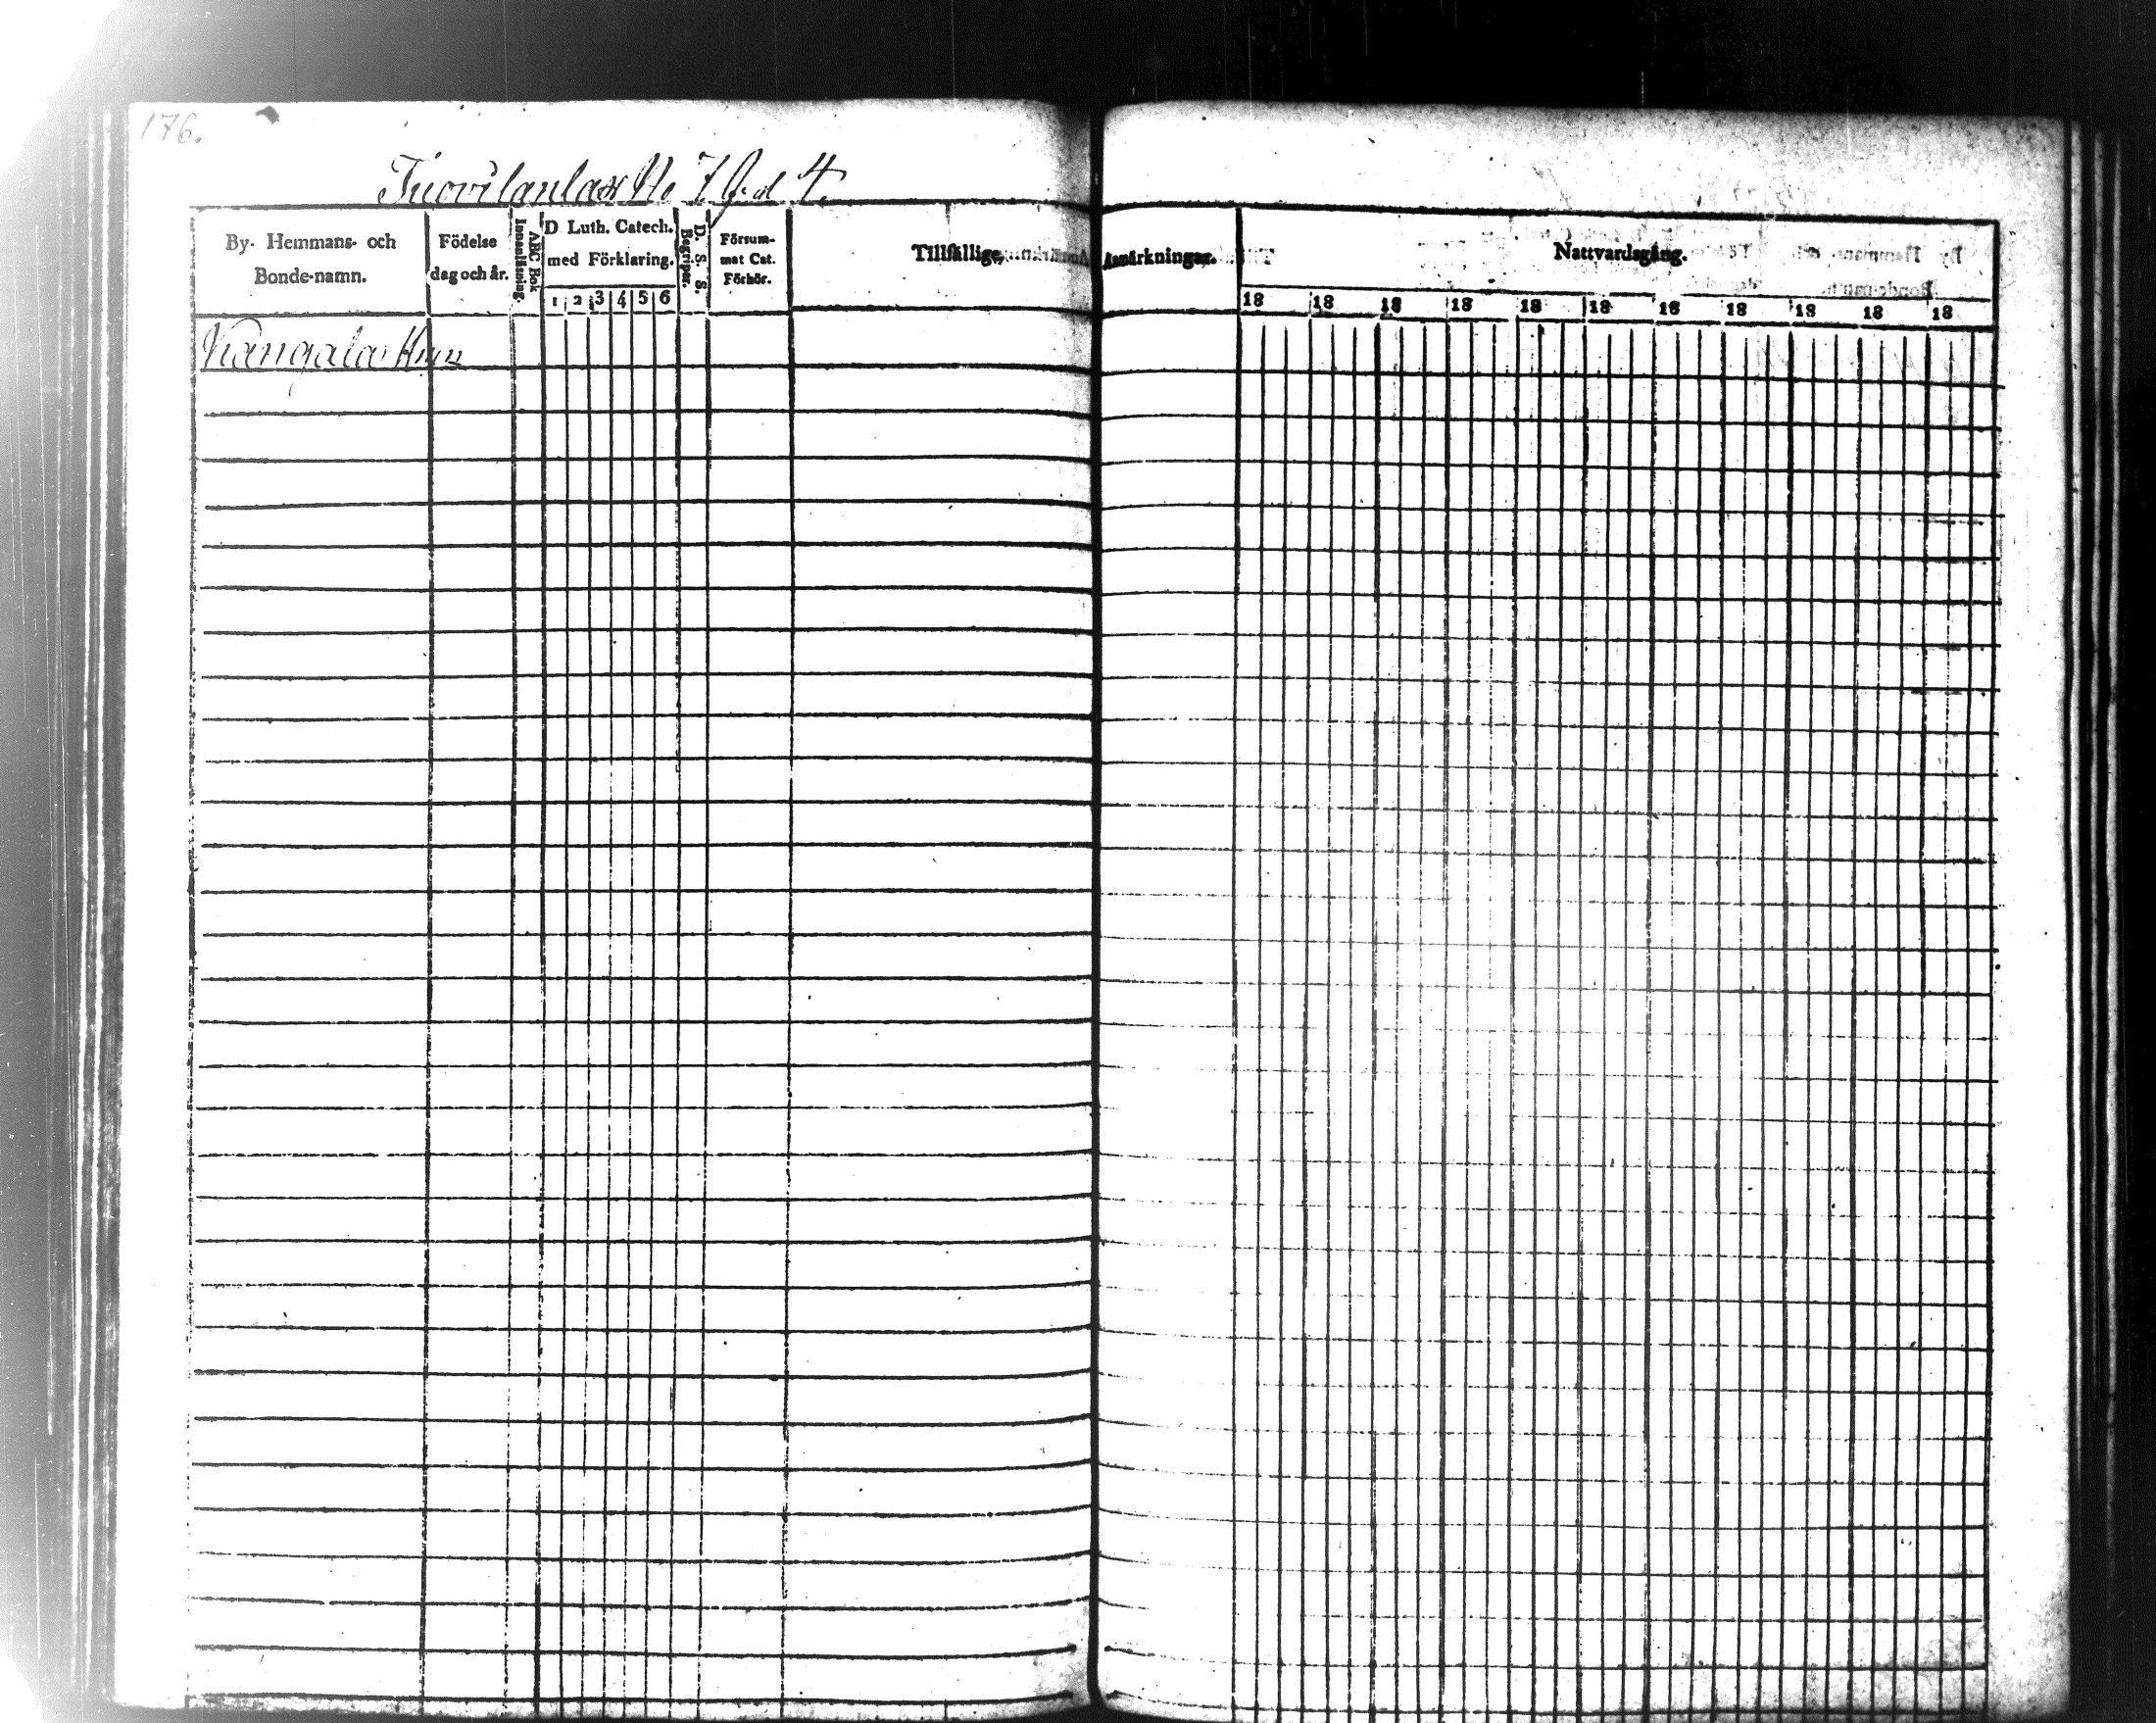 176.
Tuovilanlax No 7 Gd 4.
By- Hemmans- och
Bonde-namn.
Födelse
dag och år.
ABC Bok
Innanläsning
D Luth. Catech.
med Förklaring.
1 2 3 4 5 6
D. S. S.
Begriper.
Försum-
mat Cat.
Förhör.
Tillfällige
Anmärkningar.
Nattvardsgång.
18 18 18 18 18 18 18 18 18 18 18
Kangala